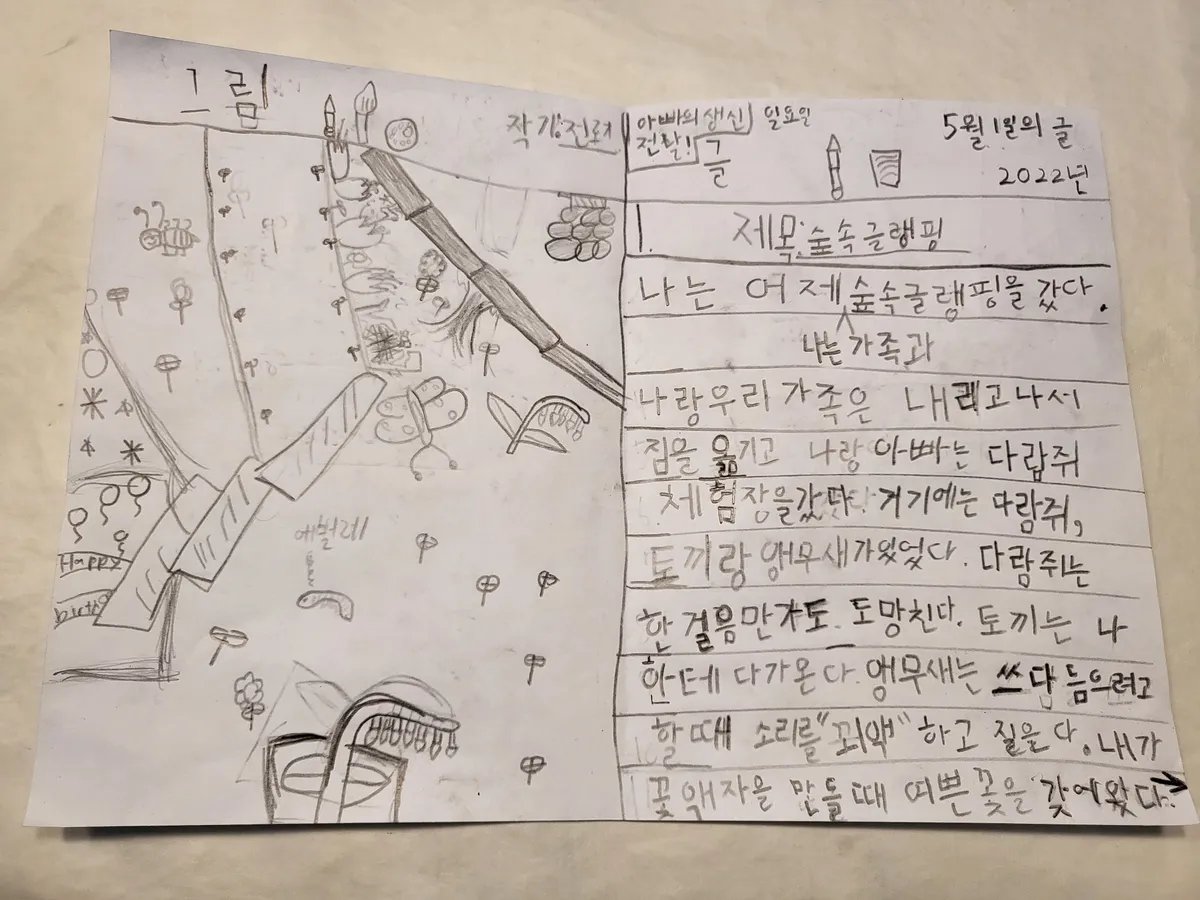 그림
아빠의 생신
전날!
글
일요일
5월 1일의 글
2022년
1. 제목: 숲속글램핑
나는 어제 숲속글램핑을 갔다.
나는 가족과
나랑우리 가족은 내리고나서
짐을 옮기고 나랑 아빠는 다랍쥐
체험장을갔다. 거기에는 다람쥐,
토끼랑 앵무새가있었다. 다람쥐는
한 걸음만가도 도망친다. 토끼는 나
한테 다가온다. 앵무새는 쓰담듬으려고
할때 소리를 "꾀액" 하고 질은다. 내가
꽃액자을 만들때 여쁜꽃을 갖에왔다.
에벌레
Happy